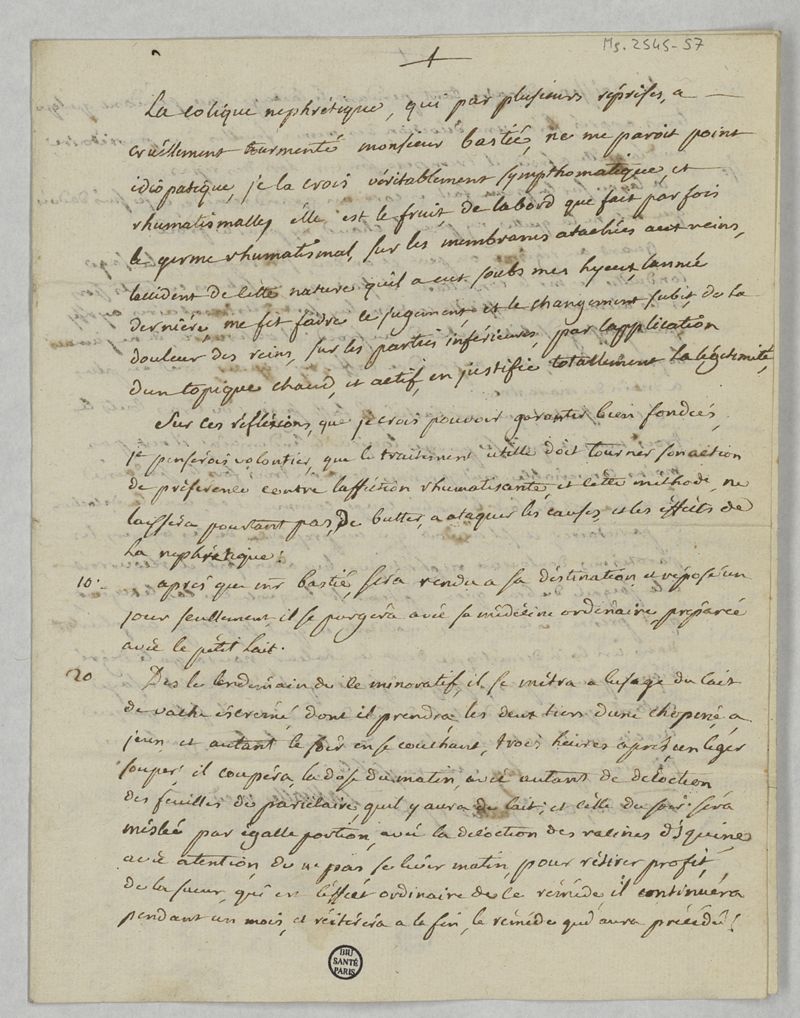 Ms. 2545-57
+
La colique nephrétique, qui par plusieurs réprises, a
cruéllement turmenté monsieur bastié, ne me paroit point
idiopatique, je la crois véritablement sympthomatique, et
rhumatismalle, élle est le fruit, de labord que fait par fois
le germe rhumatismal, sur les membranes atachées aux reins,
laccident de cette nature quil a eut soubs mes hyeux, lannée
derniére, me fit faire ce jugement, et le changement subit, de la
douleur des reins, sur les parties inférieures, par lapplication
dun topique chaud, et actif, en justifie totallement la légitimité,
Sur ces réfléxions, que je crois pouvoir garantir bien fondées,
je penserois volontier, que le traitement utille doit tourner son action
de préférence contre lafféction rhumatisante, et cétte méthode, ne
laisséra pourtant pas, de butter, a ataquer les causes, et les éfféts de
la nephrétique!
1o.- aprés que mr bastié, séra rendu a sa déstination, et réposé un
jour seullement, il se purgéra avéc sa médécine ordinaire, préparéé
avéc le pétit lait.
2o Des le lendemain de ce minoratif, il se méttra a lusage du lait
de vache écremé, dont il prendra les deux tiers dune chopine, a
jeun et autant le soir en se couchant, trois heures aprés, un léger
soupér, il coupéra, la dose du matin, avéc autant de décoction
des feuilles de pariétaire, quil y aura de lait, et célle du soir séra
mislée par égalle portion, avéc la décoction des racines désquine
avéc atention de ne pas se léver matin, pour rétirer profit,
de la sueur, qui est léffét ordinaire de ce rémède, il continuéra
pendant un mois, et réitéréra a la fin, le rémède qui aura précédé!
BIU
SANTÉ
PARIS